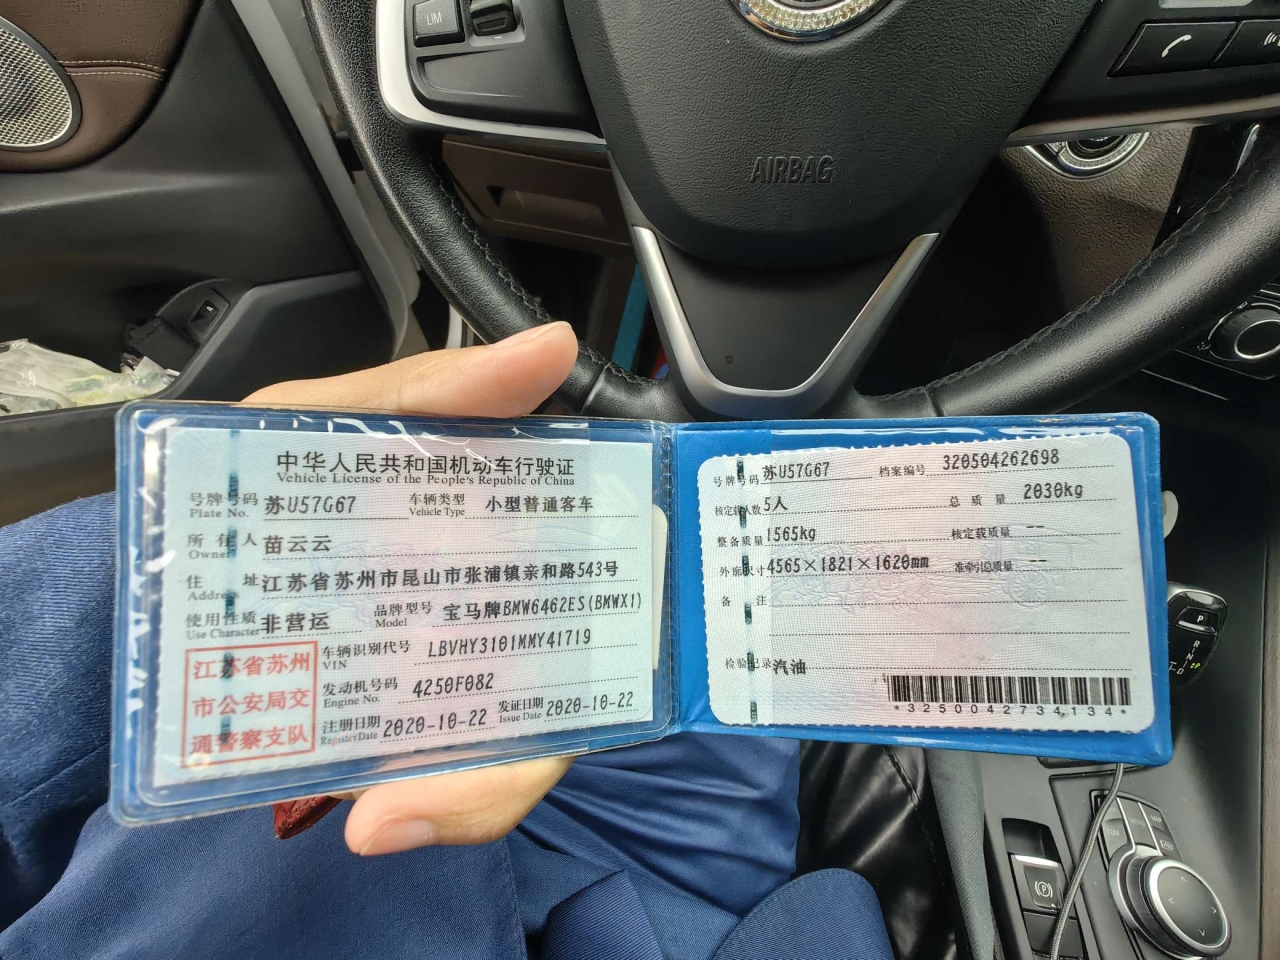 LIM
AIRBAG
中华人民共和国机动车行驶证
Vehicle License of the People's Republic of China
号牌号码 苏U57G67 车辆类型 小型普通客车
Plate No. Vehicle Type
所有人 苗云云
Owner
住址 江苏省苏州市昆山市张浦镇亲和路543号
Address
使用性质 非营运 品牌型号 宝马牌BMW6462ES(BMWX1)
Use Character Model
江苏省苏州
市公安局交
通警察支队
车辆识别代号 LBVHY3101MMY41719
VIN
发动机号码 4250F082
Engine No.
注册日期 2020-10-22 发证日期 2020-10-22
Register Date Issue Date
号牌号码 苏U57G67 档案编号 320504262698
核定载人数 5人 总质量 2030kg
整备质量 1565kg 核定载质量 --
外廓尺寸 4565×1821×1620mm 准牵引总质量 --
备注
检验记录 汽油
*3250042734134*
P
R
N
D
(P)